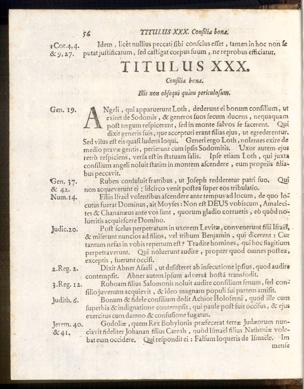 56 TITULUS XXX. Consilia bona.
1 Cor. 4, 4. Idem, licèt nullius peccati sibi conscius esset, tamen in hoc non se
& 9, 27. putat justificatum, sed castigat corpus suum, ne reprobus efficiatur.
TITULUS XXX.
Consilia bona.
Illis non obsequi quàm periculosum.
Gen. 19. ANgeli, qui apparuerunt Loth, dederunt ei bonum consilium, ut
exiret de Sodomis, & generos suos secum duceret, nequaquam
post tergum respiceret, sed in monte salvus se faceret. Qui
dixit generis suis, que acceptuti erant filias ejus, ut egrederentur.
Sed visus est eis quasi ludens loqui. Generi ergo Loth, nolentes exire de
medio pravæ gentis, perierunt cum ipsis Sodomitis. Uxor autem ejus
retrò respiciens, versa est in statuam salis. Ipse etiam Loth, qui juxta
consilium angeli noluit statim in montem ascendere, cum propriis filia-
bus peccavit.
Gen. 37. Ruben consuluit fratribus, ut Joseph redderetur patri suo. Qui
& 42. non acquieverunt ei; idcirco venit postea super eos tribulatio.
Num. 14. Filii Israël volentibus ascendere ante tempus ad locum, de quo lo-
cutus fuerat Dominus, ait Moyses: Non est DEUS vobiscum, Amaleci-
tes & Chananæus ante vos sunt, quorum gladio corruetis, eò quòd no-
lueritis acquiescere Domino.
Judic. 20. Post scelus perpetratum in uxorem Levitæ, convenerunt filii Israël,
& miserunt nuncios ad filios, vel tribum Benjamin, qui dicerent: Cur
tantum nefas in vobis repertum est? Tradite homines, qui hoc flagitium
perpetraverunt. Qui noluerunt audire, propter quod omnes postea,
exceptis, fuerunt occisi.
2. Reg. 2. Dixit Abner Asaëli, ut desisteret ab insectatione ipsius, quod audire
contempsit. Abner autem ipsum aversâ hastâ transfodit.
3. Reg. 12. Roboam filius Salomonis noluit audire consilium senum, sed con-
silio juvenum acquievit, & ideo magnam populi sui partem amisit.
Judith. 6. Bonum & fidele consilium dedit Achior Holoferni, quod ille cum
superbia & indignatione contempsit, qui paulò post fuit occisus, & ejus
exercitus cum damno & confusione fugatus.
Jerem. 40. Godoliæ, quem Rex Babylonis præfecerat terræ Judæorum nun-
& 41. ciavit fideliter Johanan filius Careeh, quòd Ismaël filius Nathaniæ vole-
bat eum occidere. Qui respondit ei: Falsum loqueris de Ismaële. Im
munia